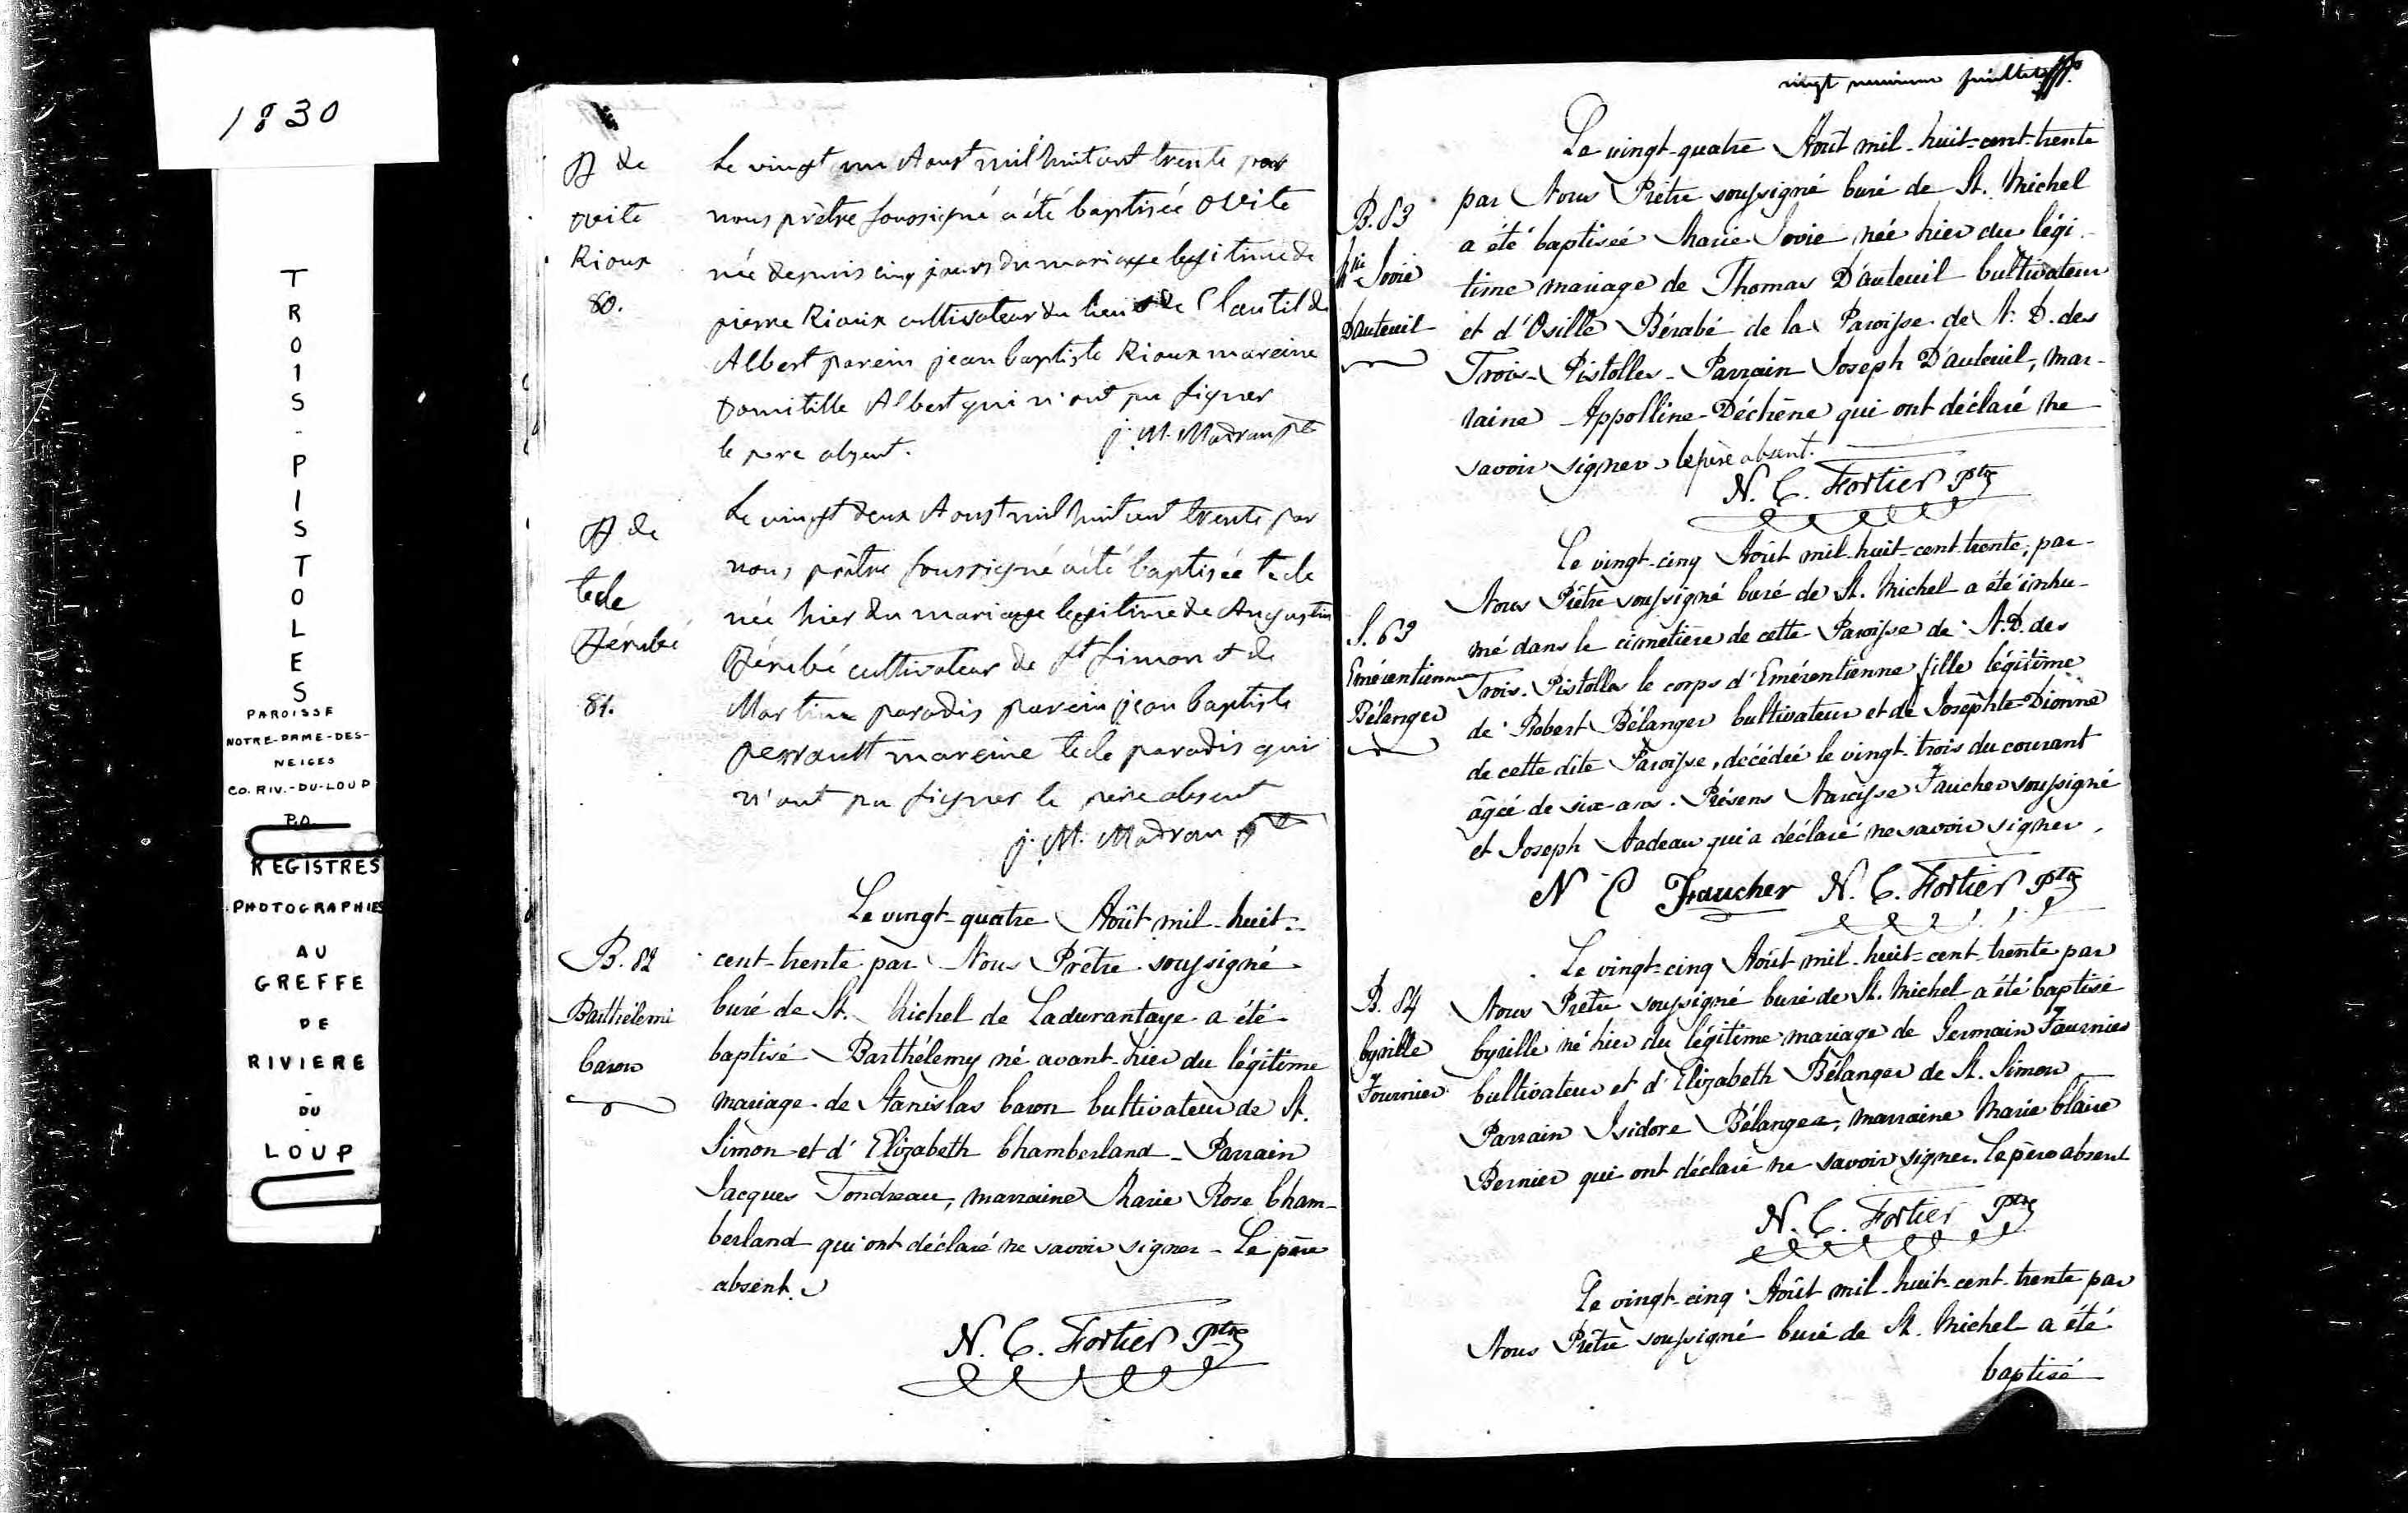 1830
TROIS-PISTOLES
PAROISSE
NOTRE-DAME-DES-
NEIGES
CO. RIV.-DU-LOUP
P.Q.
REGISTRES
PHOTOGRAPHIES
AU
GREFFE
DE
RIVIERE
-
DU
-
LOUP
B de
ovite
Rioux
80.
Le vingt un Aoust mil huit cent trente par
nous prêtre soussigné a été baptisée Ovite
née depuis cinq jours du mariage legitime de
pierre Rioux cultivateur du lieu & de Clautilde
Albert parein jean baptiste Rioux mareine
Domitille Albert qui n'ont pu signer
le pere absent.
j. M. Madran ptre
B de
tecle
Bérubé
81.
Le vingt deux Aoust mil huit cent trente par
nous prêtre soussigné a été baptisée tecle
née hier du mariage legitime de Augustin
Bérubé cultivateur de st simon & de
Martine paradis parein jean baptiste
perrault mareine tecle paradis qui
n'ont pu signer le peire absent
j. M. Madran ptre
B. 82
Barthélemi
Caron
Le vingt-quatre Août mil-huit-
cent-trente par Nous Prêtre soussigné
Curé de St. Michel de Ladurantaye a été
baptisé Barthélemy né avant-hier du légitime
mariage de Stanislas Caron Cultivateur de St.
Simon et d'Elizabeth Chamberland - Parrain
Jacques Tondreau, marraine Marie Rose Cham-
berland qui ont déclaré ne savoir signer - Le père
absent.
N. C. Fortier Ptre
vingt neuvieme
B. 83
Mie Jovie
Dauteuil
Le vingt-quatre Août mil-huit-cent-trente
par Nous Prêtre soussigné Curé de St. Michel
a été baptiseé Marie Jovie née hier du légi-
time mariage de Thomas D'auteuil Cultivateur
et d'Osille Bérubé de la Paroisse de N. D. des
Trois-Pistolles - Parrain Joseph D'auteuil, mar-
raine Appolline-Déchêne qui ont déclaré ne
savoir signer le père absent.
N. C. Fortier Ptre
S. 63
Emérentienne
Bélanger
Le vingt-cinq Août mil-huit-cent trente, par
Nous Prêtre soussigné Curé de St. Michel a été inhu-
mé dans le cimetière de cette Paroisse de N.D. des
Trois-Pistolles le corps d'Emérentienne fille légitime
de Robert Bélanger Cultivateur et de Josephte-Dionne
de cette dite Paroisse, décédée le vingt-trois du courant
âgée de six ans. Présens Narcisse Faucher soussigné
et Joseph Nadeau qui a déclaré ne savoir signer.
N C Faucher N. C. Fortier Ptre
B. 84
Cyrille
Fournier
Le vingt-cinq Août mil-huit-cent-trente par
Nous Prêtre soussigné Curé de St. Michel a été baptisé
Cyrille né hier du légitime mariage de Germain Fournier
Cultivateur et d'Elizabeth Bélanger de St. Simon
Parrain Isidore Bélanger, marraine Marie Claire
Bernier qui ont déclaré ne savoir signer. Le père absent
N. C. Fortier Ptre
Le vingt-cinq Août mil-huit-cent-trente par
Nous Prêtre soussigné Curé de St. Michel a été
baptisé